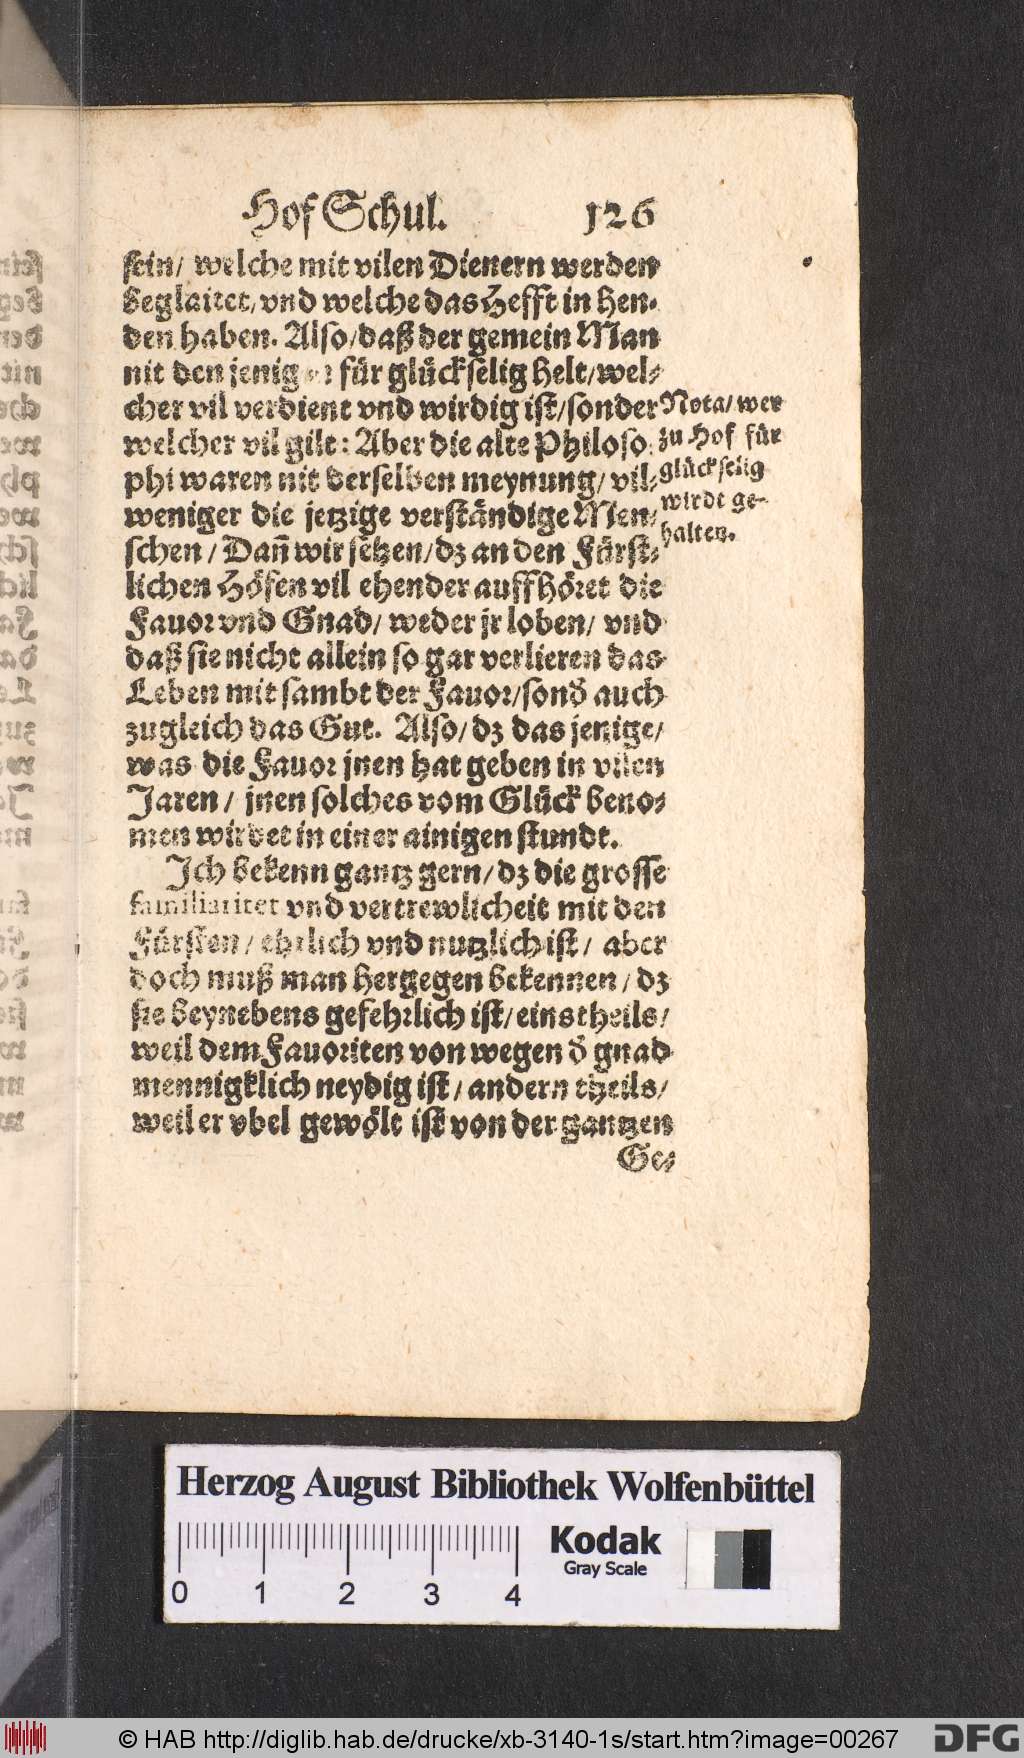 Hof Schul. 126
sein/ welche mit vilen Dienern werden
beglaitet/ vnd welche das Hefft in hen-
den haben. Also/ daß der gemein Man
nit den jenigen für glückselig helt/ wel-
cher vil verdient vnd wirdig ist/ sonder
welcher vil gilt: Aber die alte Philoso-
phi waren nit derselben meynung/ vil-
weniger die jetzige verständige Men-
schen/ Dañ wir sehen/ dz an den Fürst-
lichen Höfen vil ehender auffhöret die
Fauor vnd Gnad/ weder jr loben/ vnd
daß sie nicht allein so gar verlieren das
Leben mit sambt der Fauor/ sonð auch
zugleich das Gut. Also/ dz das jenige/
was die Fauor jnen hat geben in vilen
Jaren/ jnen solches vom Glück beno-
men wirdet in einer ainigen stundt.
Ich bekenn gantz gern/ dz die grosse
familiaritet vnd vertrewlicheit mit den
Fürsten/ ehrlich vnd nutzlich ist/ aber
doch muß man hergegen bekennen/ dz
sie beynebens gefehrlich ist/ eins theils/
weil dem Fauoriten von wegen ð gnad
mennigklich neydig ist/ andern theils/
weil er vbel gewölt ist von der gantzen
Ge-
Nota/ wer
zu Hof für
glückselig
wirdt ge-
halten.
Herzog August Bibliothek Wolfenbüttel
Kodak
Gray Scale
0 1 2 3 4
© HAB http://diglib.hab.de/drucke/xb-3140-1s/start.htm?image=00267
DFG